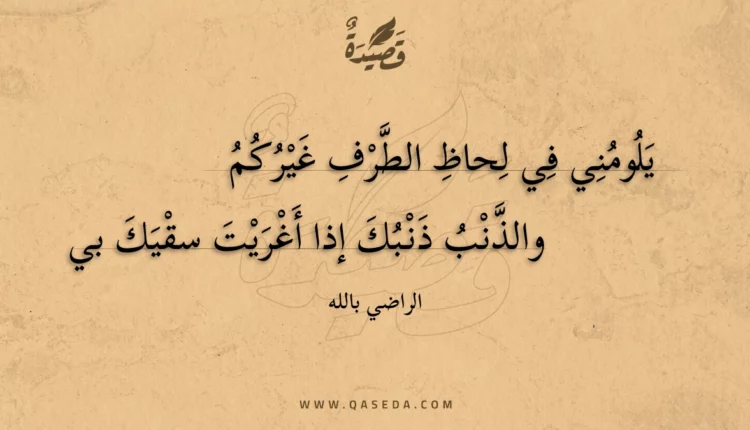 قَصِيدَةٌ
يَلُومُنِي فِي لِحاظِ الطَّرْفِ غَيْرُكُمُ
والذَّنْبُ ذَنْبُكَ إذا أَغْرَيْتَ سقْيَكَ بي
الراضي بالله
WWW.QASEDA.COM